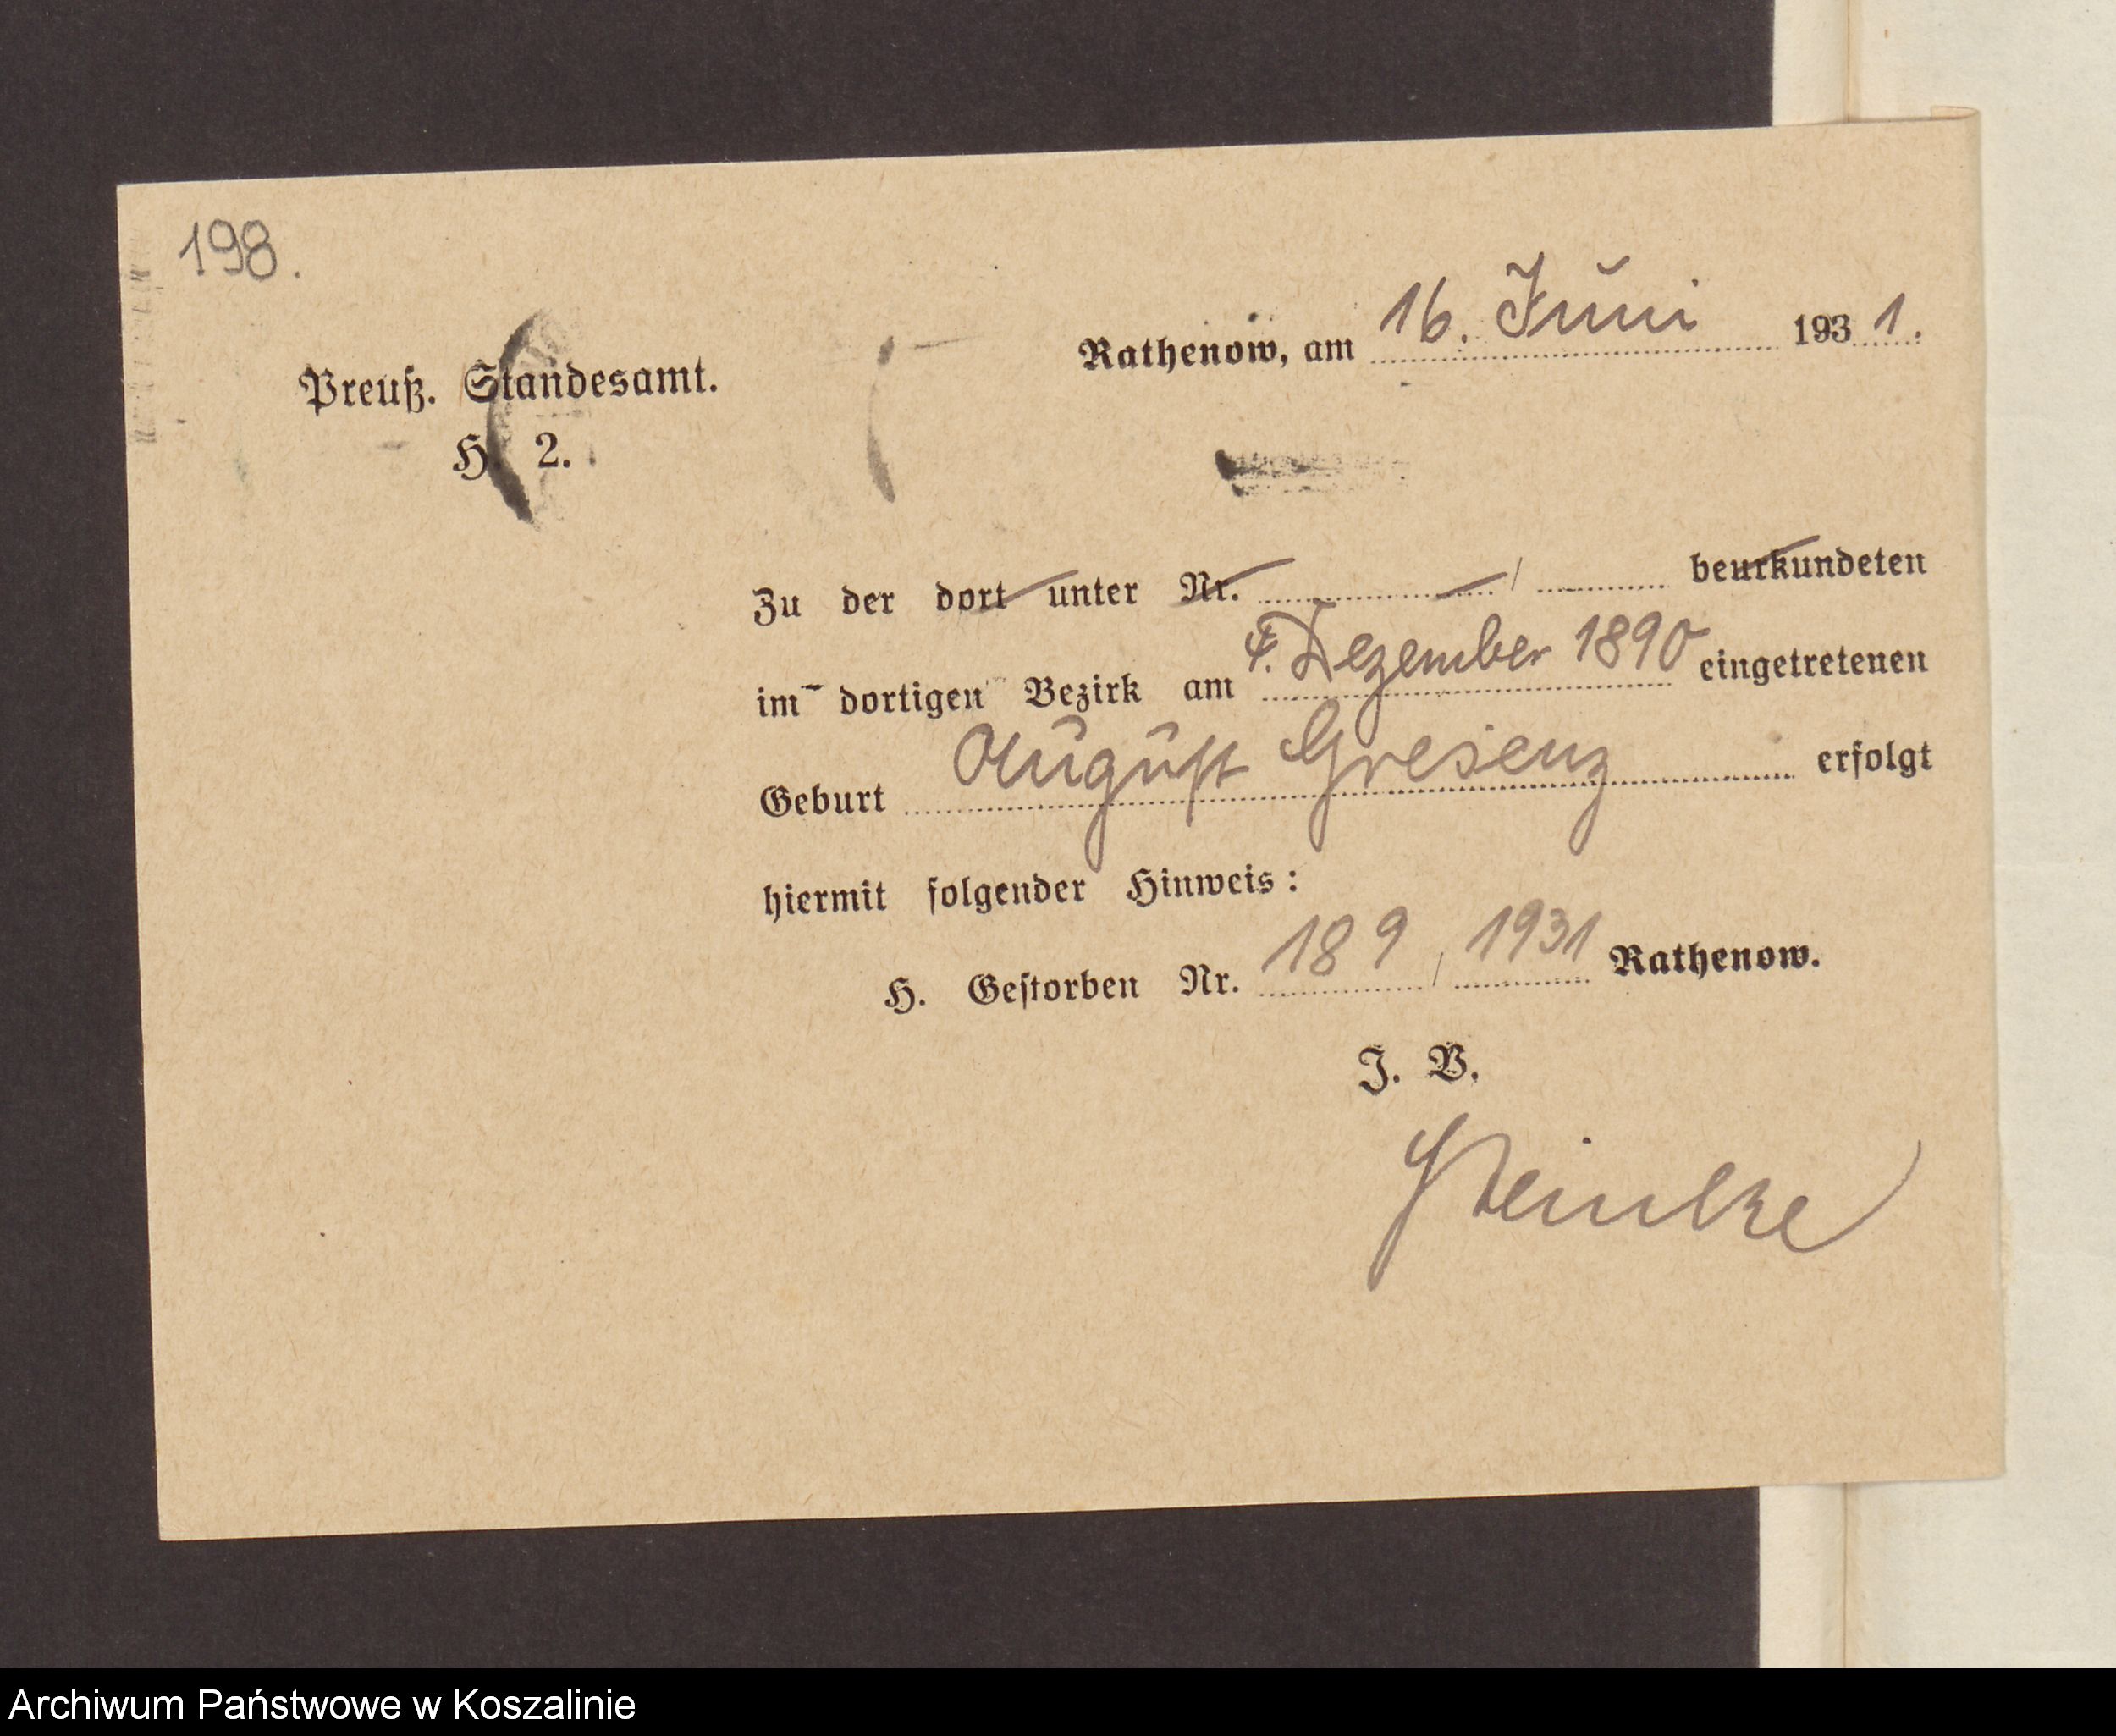 198.
Rathenow, am 16. Juni 1931.
Preuß. Standesamt.
H. 2.
Zu der dort unter Nr. / beurkundeten
im dortigen Bezirk am 4. Dezember 1890 eingetretenen
Geburt August Gresenz erfolgt
hiermit folgender Hinweis:
H. Gestorben Nr. 189 / 1931 Rathenow.
J. V.
Steinke
Archiwum Państwowe w Koszalinie